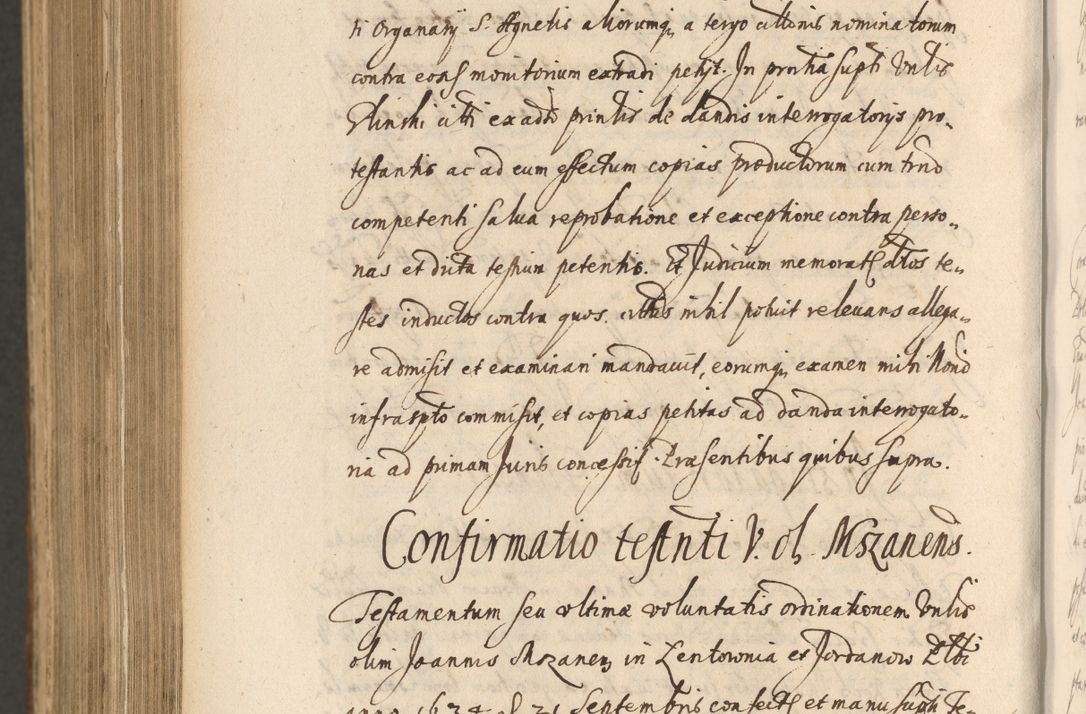 ti Organarÿ S. Agnetis aliorumq, a tergo cittõnis nominatorum
contra eosđ monitorium extradi petÿt. In prntia supti Vnlis
Glinski citti ex adõ prinlis de dandis interrogatorÿs pro„
testantis ac ad eum effectum copias productorum cum trno
competenti salua reprobatione et exceptione contra perso„
nas et dicta testium petentis. Et Judicium memorat dtos te„
stes inductos contra quos cittus nihil potuit releuans allega„
re admisit et examinari mandauit, eorumq, examen mihi Norio
infraspto commisit, et copias petitas ad danda interrogato„
ria ad primam Juris concessit. Præsentibus quibus supra.
Confirmatio testnti V. ol. Mszanens.
Testamentum seu vltimæ voluntatis ordinationem Vnlis
olim Joannis Mszanen, in Lentownia et Jordanow Plbi
anno 1634 21 Septembris confect et manu